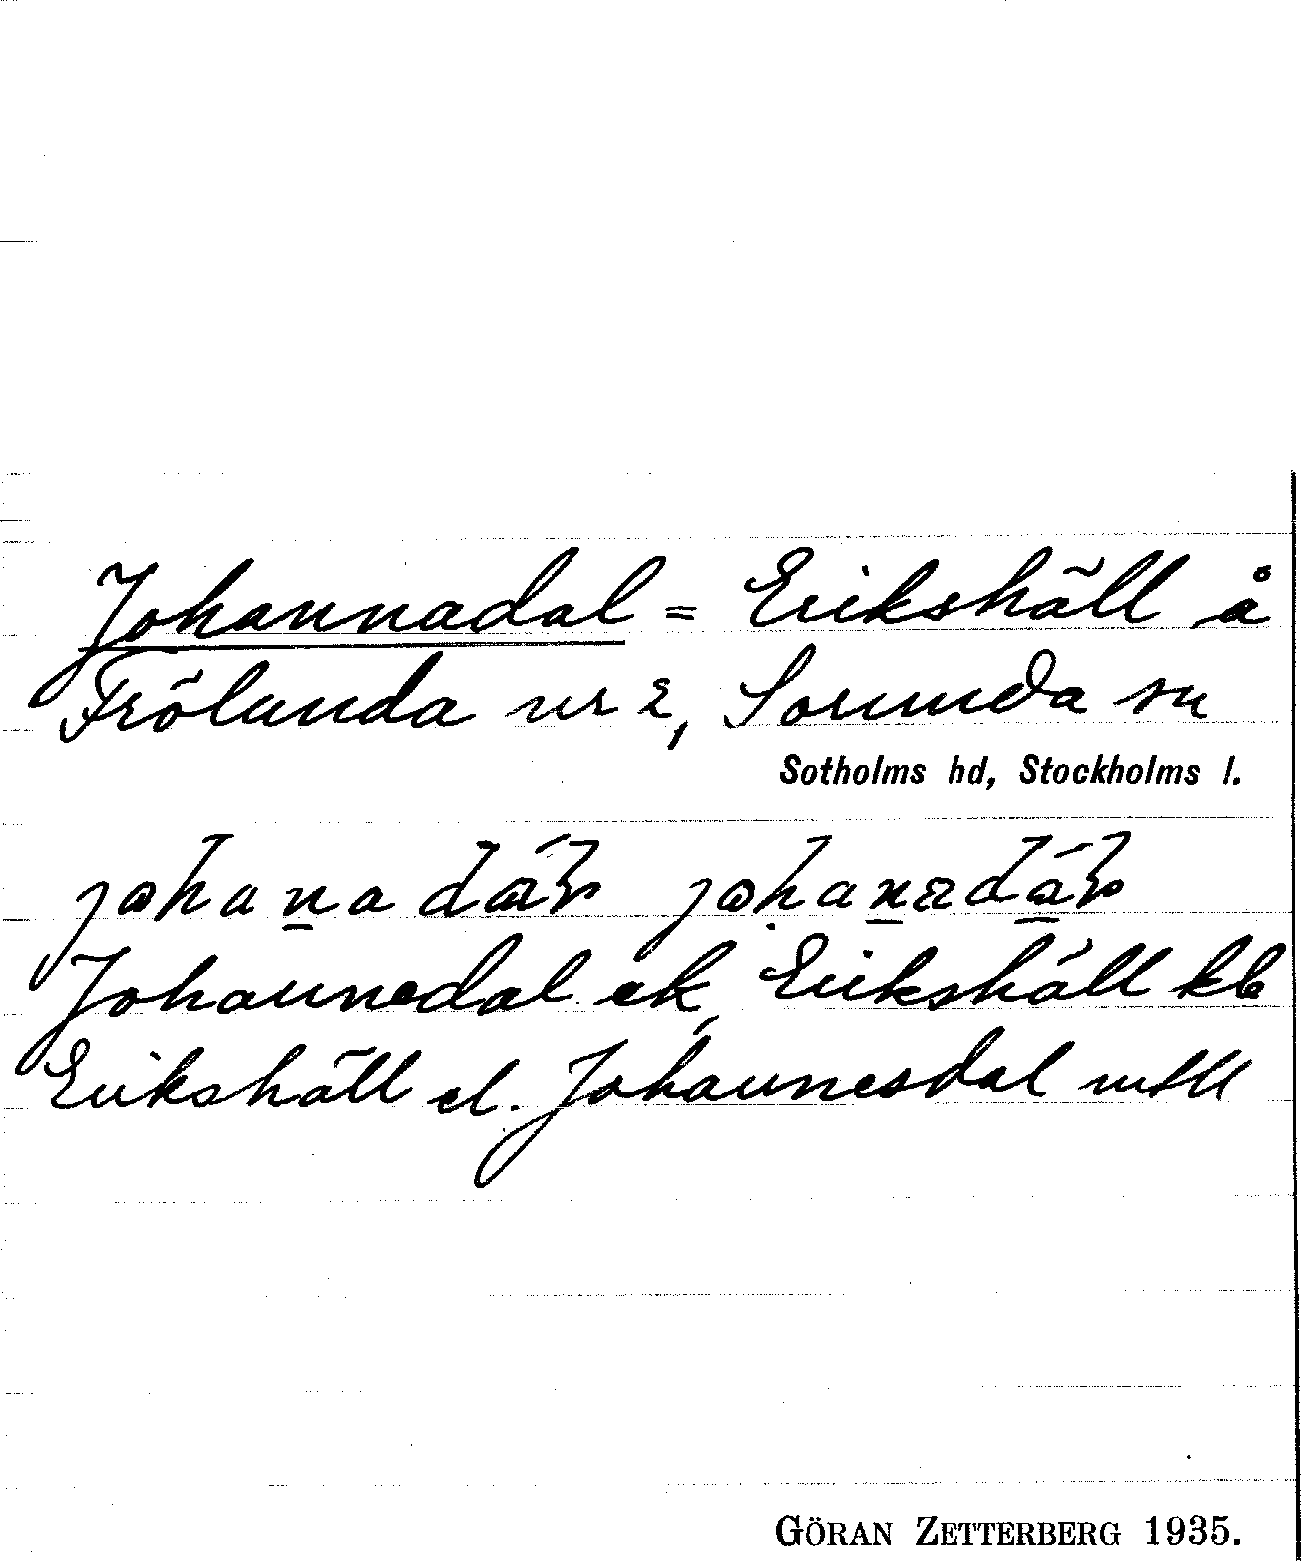 Johannadal = Erikshäll å
Frölunda nr 2, Sorunda sn
Sotholms hd, Stockholms l.
Johannedal ek, Erikshäll kb
Erikshäll el. Johannesdal mtll
GÖRAN ZETTERBERG 1935.